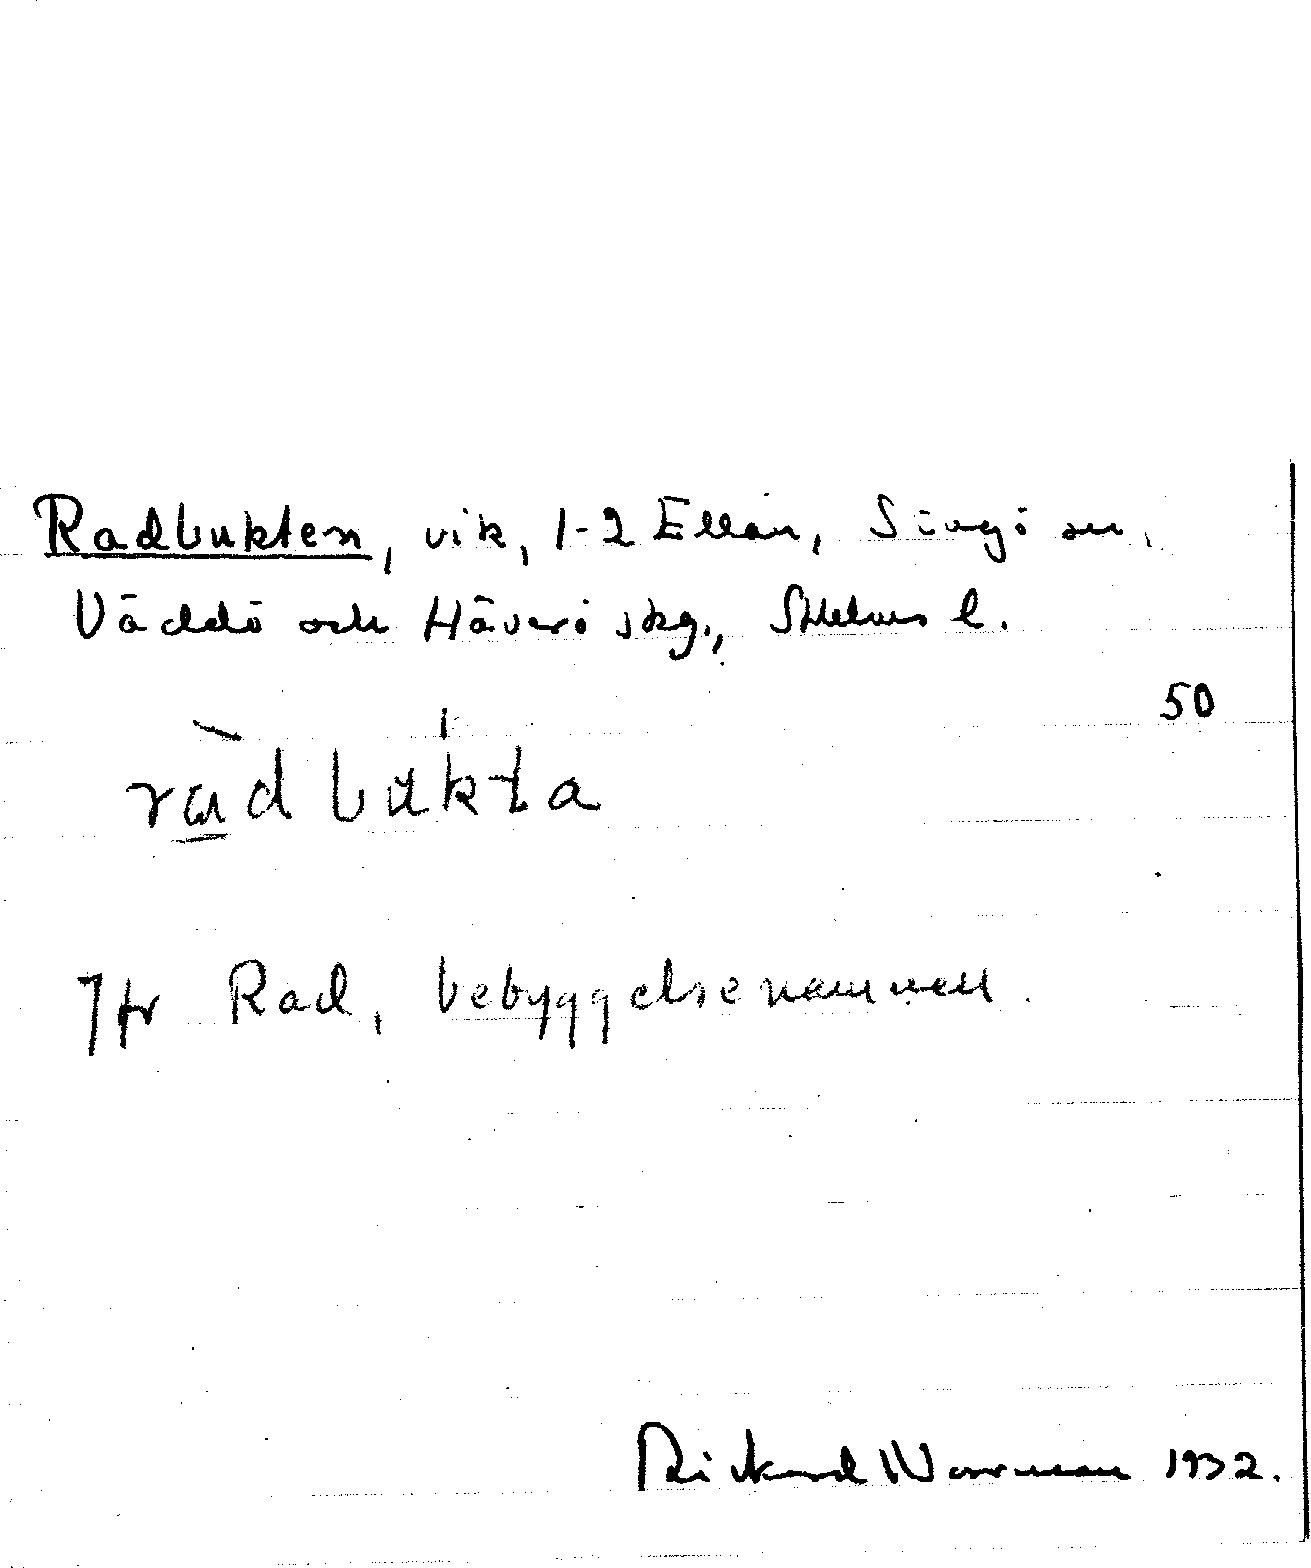 Radbukten, vik, 1-2 Ellan, Singö sn,
Väddö och Häverö skg., Sthlms l.
50
ràdbukta
Jfr Rad, bebyggelsenamnen.
Rickard Norrman 1932.